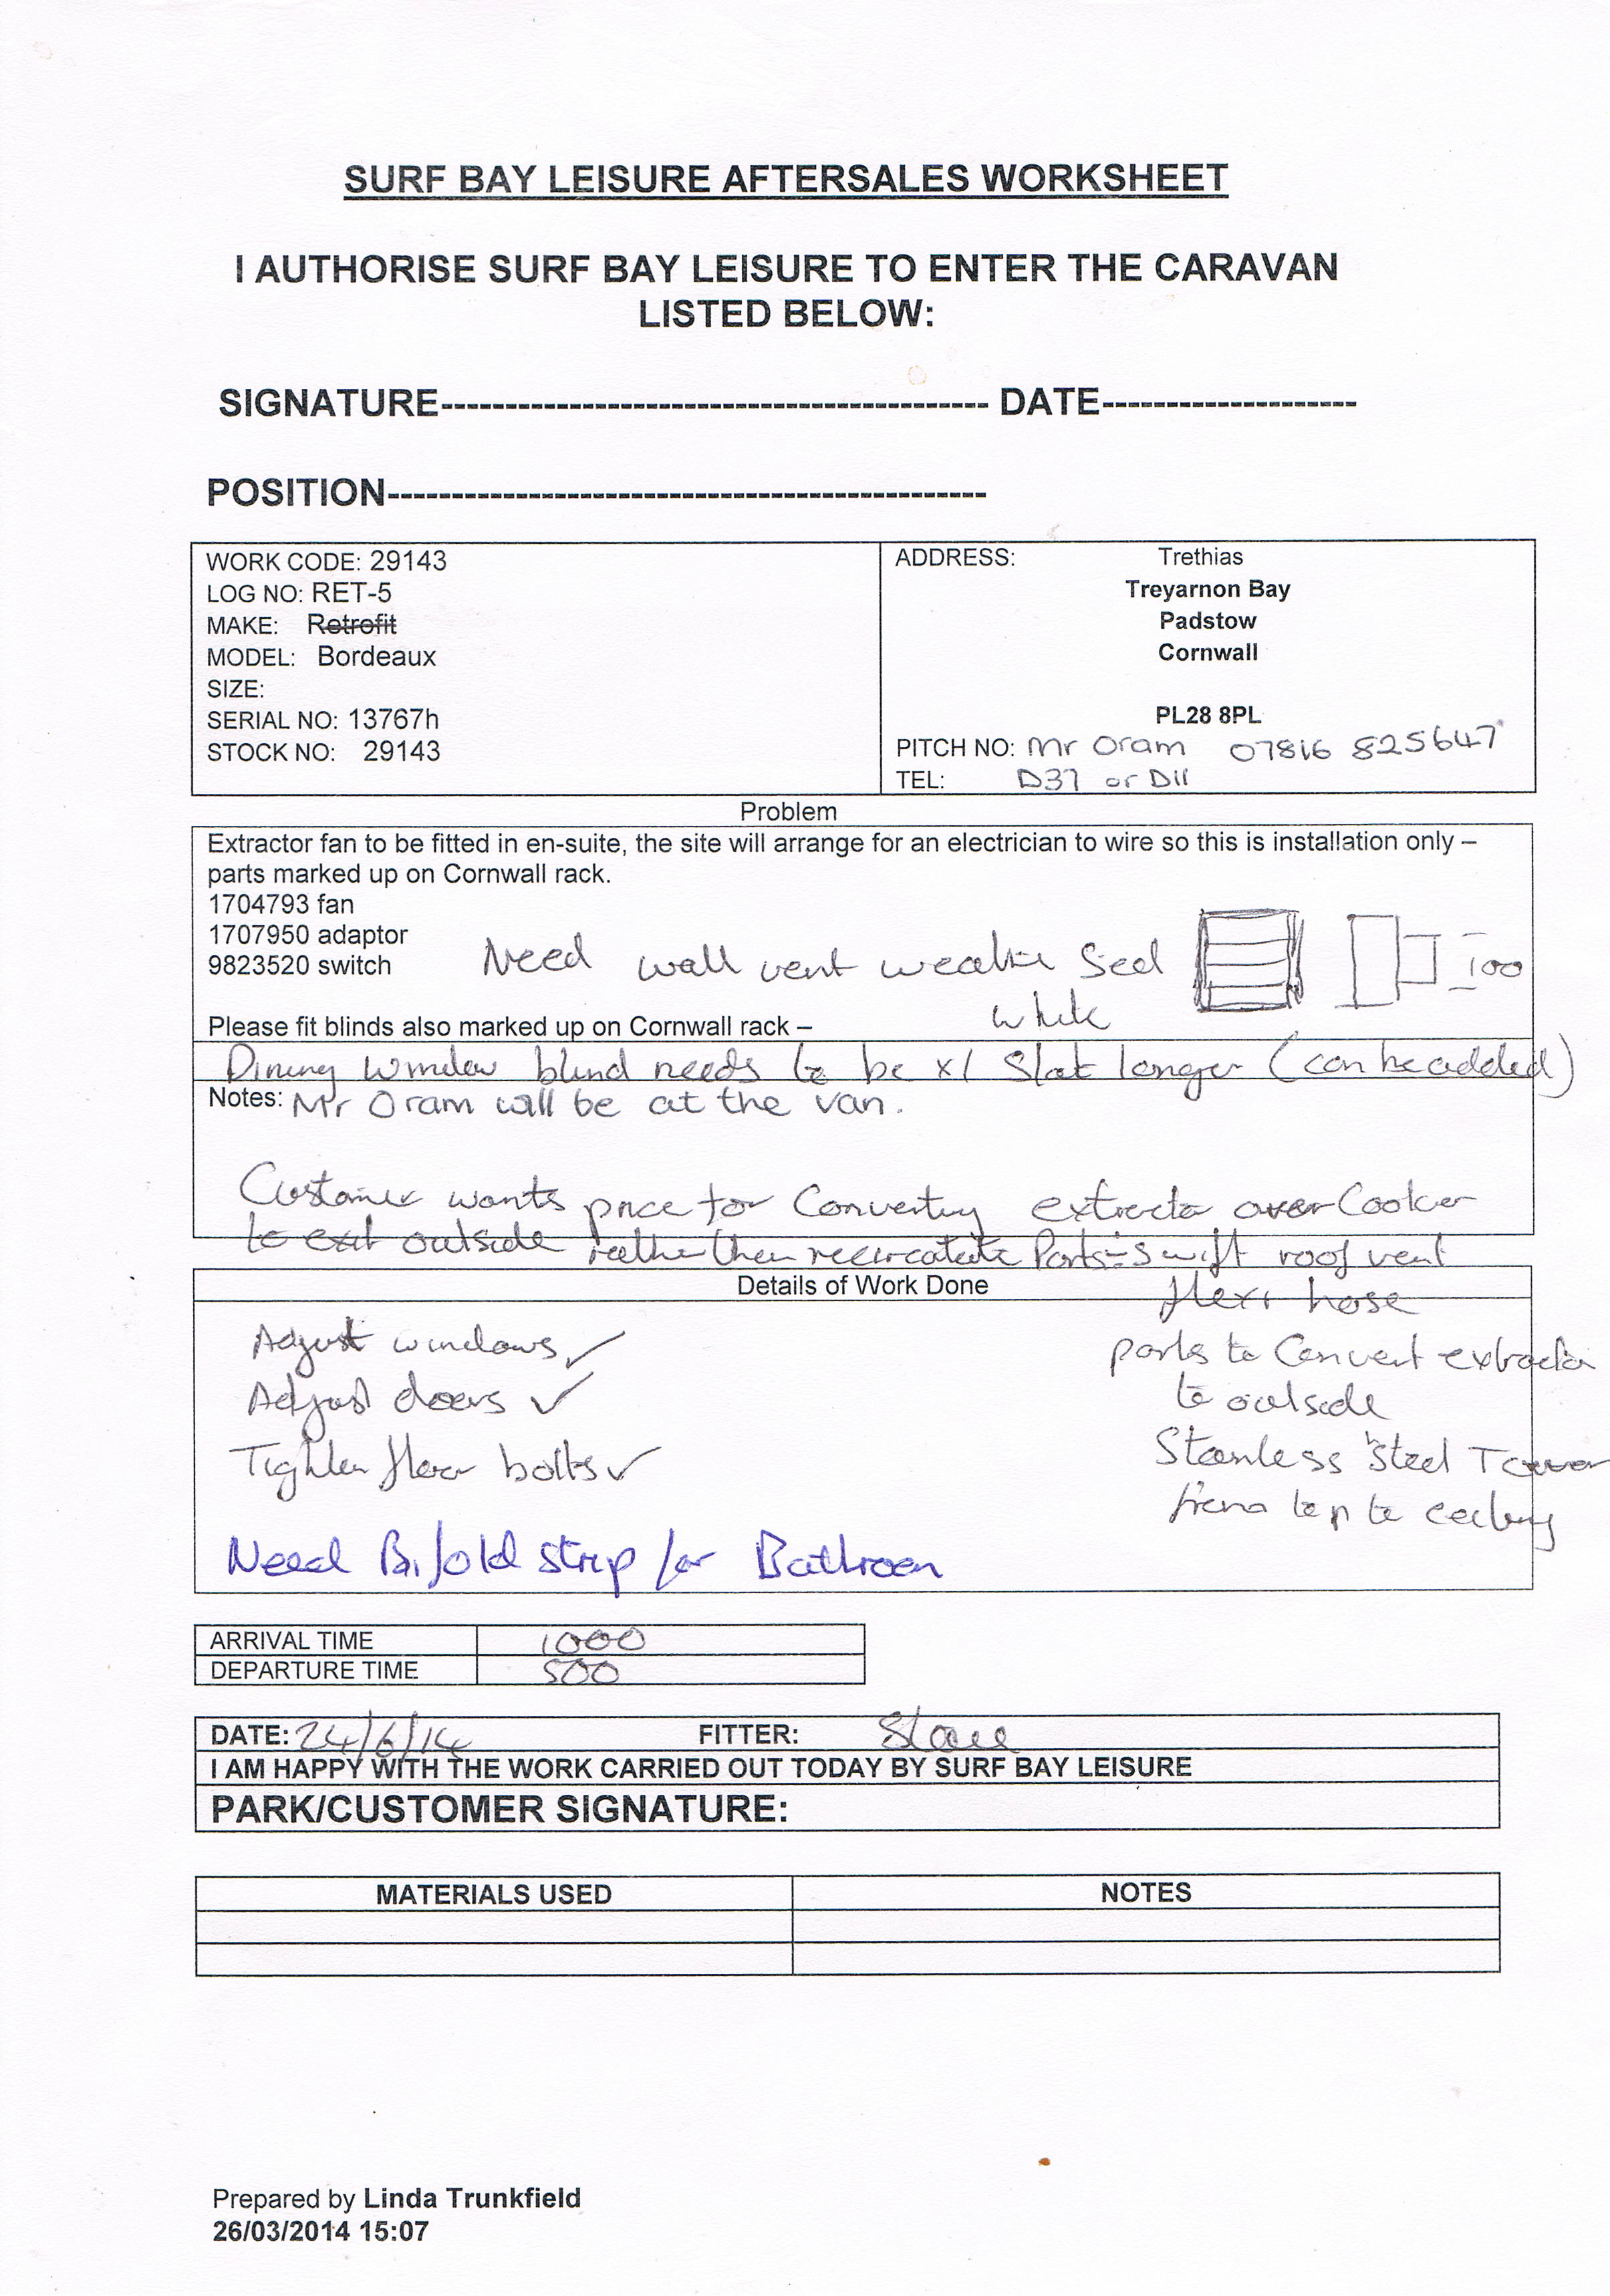 SURF BAY LEISURE AFTERSALES WORKSHEET
I AUTHORISE SURF BAY LEISURE TO ENTER THE CARAVAN
LISTED BELOW:
SIGNATURE------------------------------------------- DATE--------------------
POSITION-----------------------------------------------
WORK CODE: 29143
LOG NO: RET-5
MAKE: Retrofit
MODEL: Bordeaux
SIZE:
SERIAL NO: 13767h
STOCK NO: 29143
ADDRESS: Trethias
Treyarnon Bay
Padstow
Cornwall
PL28 8PL
PITCH NO: Mr Oram 07816 825647
TEL: D37 or D11
Problem
Extractor fan to be fitted in en-suite, the site will arrange for an electrician to wire so this is installation only –
parts marked up on Cornwall rack.
1704793 fan
1707950 adaptor
9823520 switch
Need wall vent weather seal
100
white
Please fit blinds also marked up on Cornwall rack –
Dining window blind needs to be x1 slat longer (can be added)
Notes: Mr Oram will be at the van.
Customer wants price for Converting extractor over Cooker
to exit outside rather than recirculate Parts = Swift roof vent
flexi hose
parts to Convert extractor
to outside
Stainless Steel Tower
from top to ceiling
Details of Work Done
Adjust windows ✓
Adjust doors ✓
Tighten floor bolts ✓
Need Bifold strip for Bathroom
ARRIVAL TIME 1000
DEPARTURE TIME 500
DATE: 24/6/14 FITTER:
I AM HAPPY WITH THE WORK CARRIED OUT TODAY BY SURF BAY LEISURE
PARK/CUSTOMER SIGNATURE:
MATERIALS USED NOTES
Prepared by Linda Trunkfield
26/03/2014 15:07